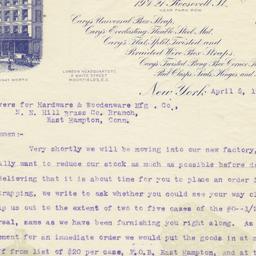 19 & 21 Roosevelt St.,
NEAR PARK ROW
Cary's Universal Box Strap.
Cary's Everlasting Flexible Steel Mat.
Cary's Flat, Split, Twisted and
Braided Wire Box Straps.
Cary's Twisted Prong Box Corner
Pail Clasps, Seals, Hinges and
LONDON HEADQUARTERS
2 WHITE STREET
MOORFIELDS, E.C.
New York, April 5, 1
vers for Hardware & Woodenware Mfg. Co.,
N. N. Hill Brass Co. Branch,
East Hampton, Conn.
emen:-
Very shortly we will be moving into our new factory,
ally want to reduce our stock as much as possible before d
elieving that it is about time for you to place an order i
trapping, we write to ask whether you could see your way cl
ip us out to the extent of two to five cases of the #0--1/2
rsal, same as we have been furnishing you right along. As
ement for an immediate order we would put the goods in at
ff from list of $20 per case, F.O.B. East Hampton, and at